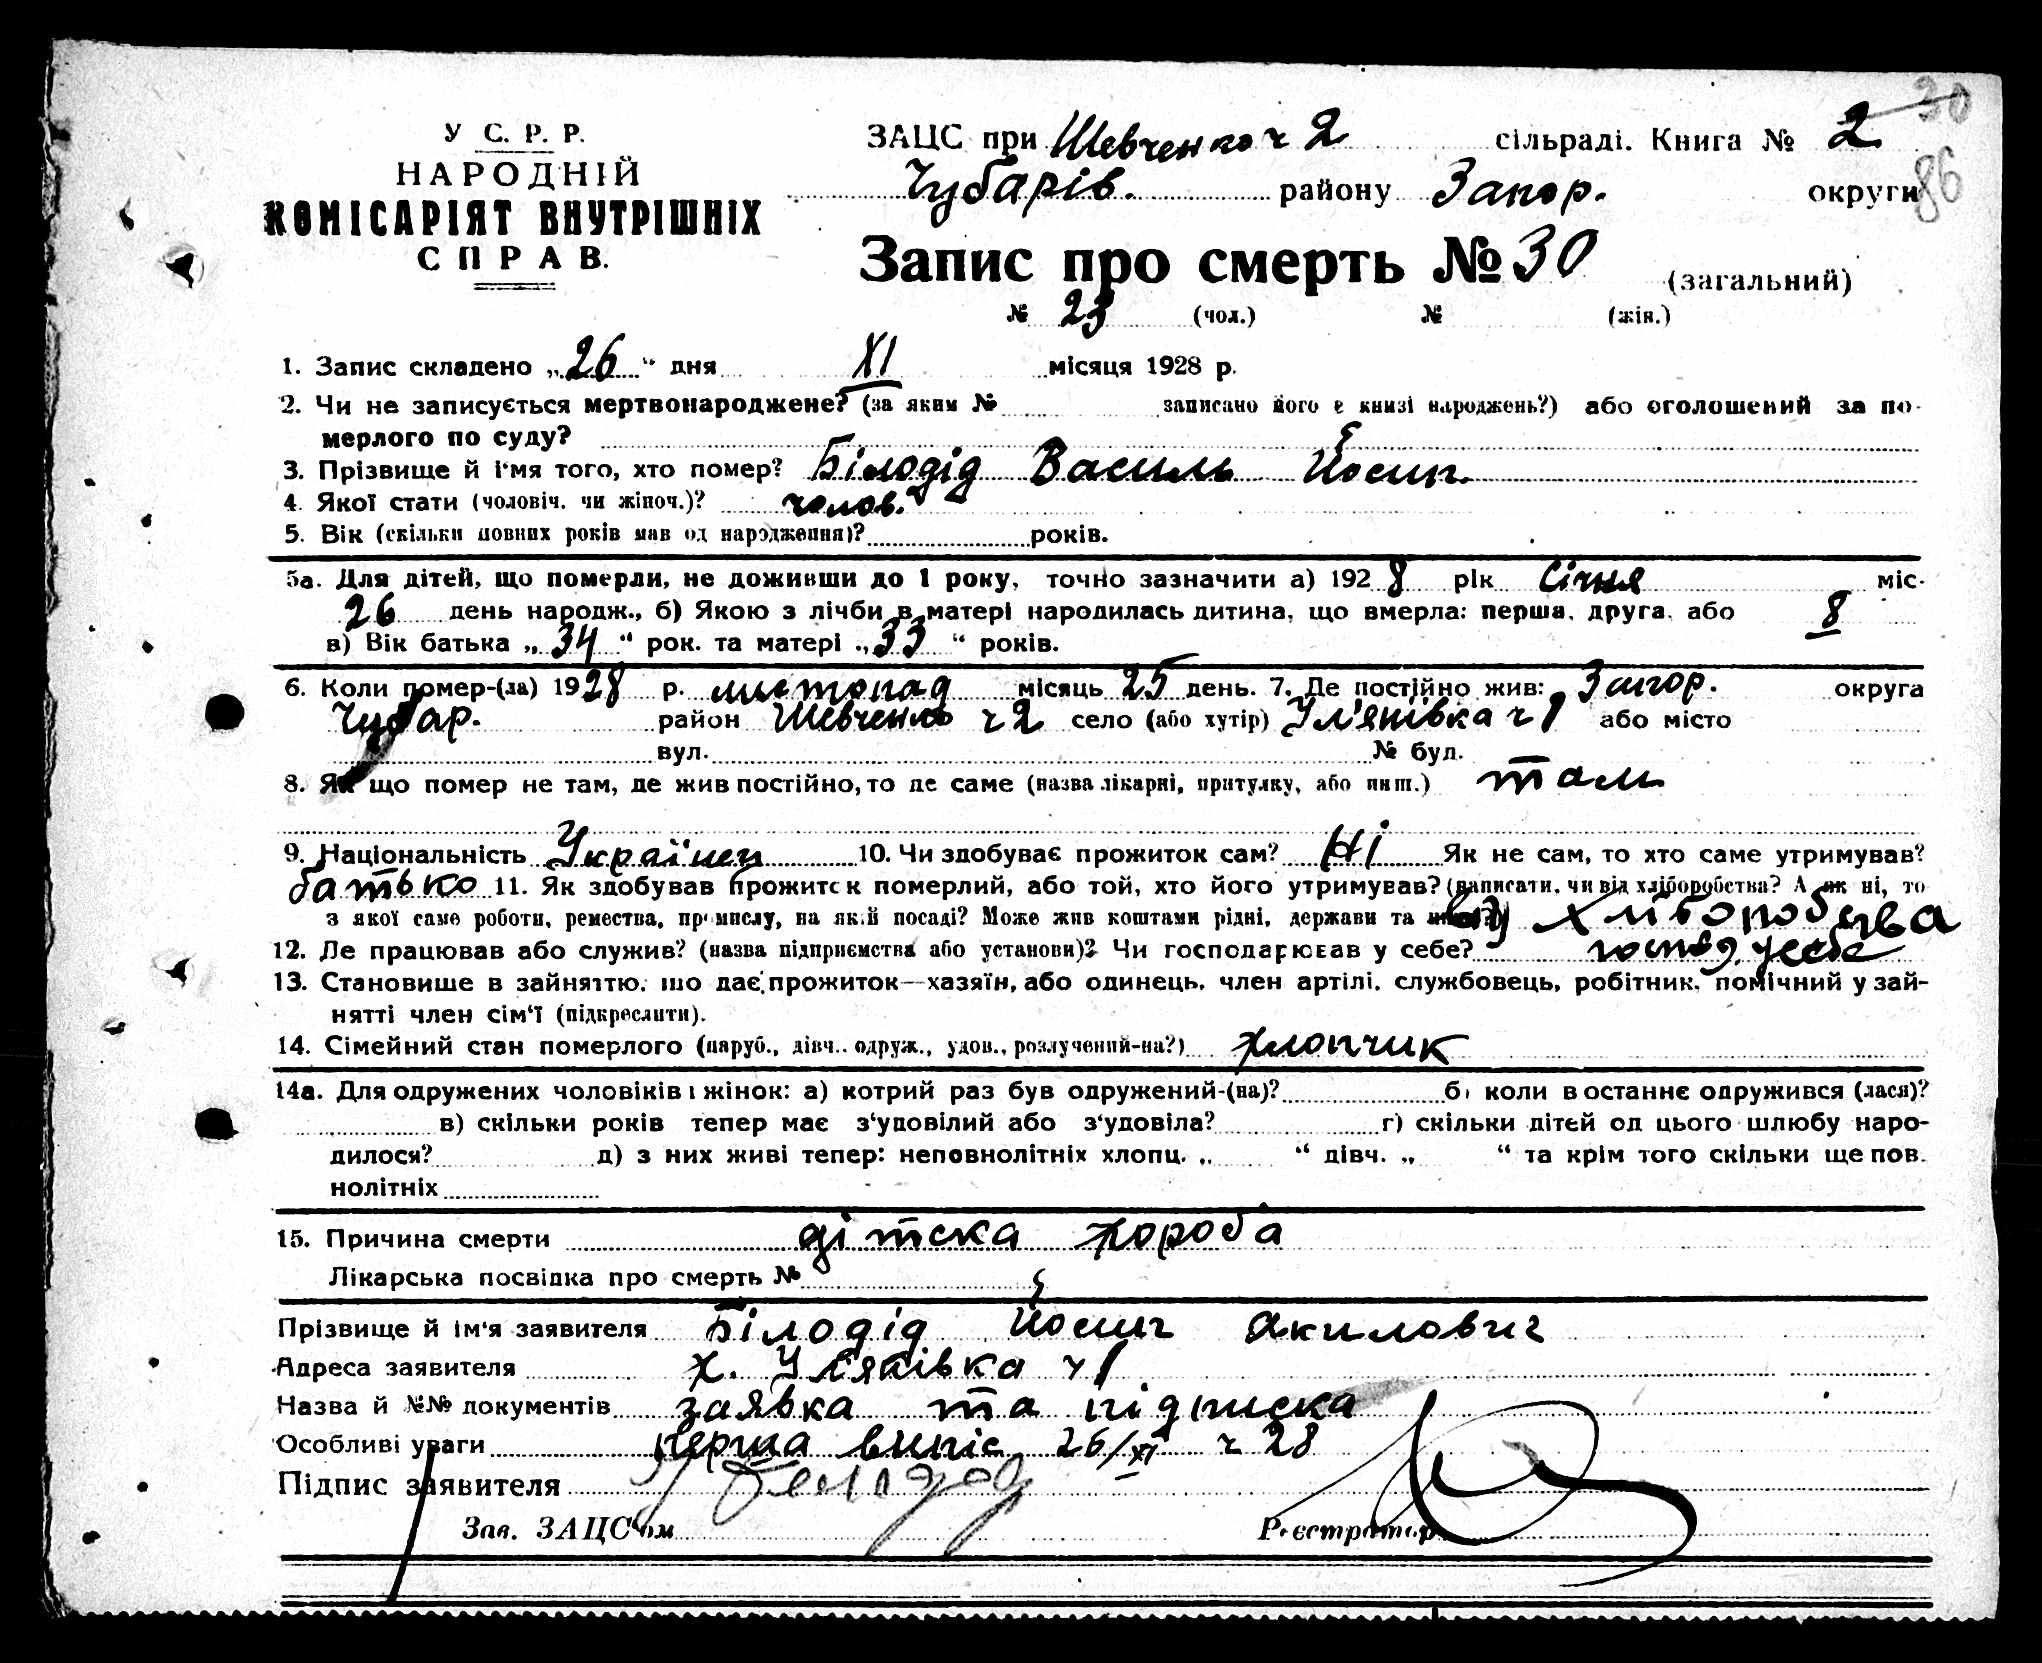 У С. Р. Р.
НАРОДНІЙ
КОМІСАРІЯТ ВНУТРІШНІХ
СПРАВ.
30
86
ЗАЦС при Шевченко ч 2 сільраді. Книга № 2
Чубарів. району Запор. округи
Запис про смерть № 30 (загальний)
№ 23 (чол.) № (жін.)
1. Запис складено „26“ дня XI місяця 1928 р.
2. Чи не записується мертвонароджене? (за яким № записано його в книзі народжень?) або оголошений за по-
мерлого по суду?
3. Прізвище й і'мя того, хто помер? Білодід Василь Йосип.
4. Якої стати (чоловіч. чи жіноч.)? чолов.
5. Вік (скільки повних років мав од народження)? років.
5а. Для дітей, що померли, не доживши до 1 року, точно зазначити а) 1928 рік Січня міс.
26 день народж., б) Якою з лічби в матері народилась дитина, що вмерла: перша, друга, або 8
в) Вік батька „34“ рок. та матері „33“ років.
6. Коли помер-(ла) 1928 р. листопад місяць 25 день. 7. Де постійно жив: Запор. округа
Чубар. район Шевченко ч 2 село (або хутір) Ул'янівка ч 1 або місто
вул. № буд.
8. Як що помер не там, де жив постійно, то де саме (назва лікарні, притулку, або инш.) там
9. Національність Українец 10. Чи здобуває прожиток сам? Ні Як не сам, то хто саме утримував?
батько 11. Як здобував прожиток померлий, або той, хто його утримував? (написати, чи від хліборобства? А як ні, то
з якої саме роботи, ремества, промислу, на якій посаді? Може жив коштами рідні, держави та від хлібопобства
12. Де працював або служив? (назва підприємства або установи)? Чи господарював у себе? господ. усебе
13. Становище в зайняттю, що дає прожиток—хазяїн, або одинець, член артілі, службовець, робітник, помічний у зай-
нятті член сім'ї (підкреслити).
14. Сімейний стан померлого (паруб., дівч., одруж., удов., розлучений-на?) хлопчик
14а. Для одружених чоловіків і жінок: а) котрий раз був одружений-(на)? б) коли в останнє одружився (лася)?
в) скільки років тепер має з'удовілий або з'удовіла? г) скільки дітей од цього шлюбу наро-
дилося? д) з них живі тепер: неповнолітніх хлопц. „ “ дівч. „ “ та крім того скільки ще пов.
нолітніх
15. Причина смерти дітска хороба
Лікарська посвідка про смерть №
Прізвище й ім'я заявителя Білодід Йосип Акилович
Адреса заявителя х. Ул'янівка ч 1
Назва й №№ документів заявка та підписка
Особливі уваги перша випіс 26/XI ч 28
Підпис заявителя Белодед
Зав. ЗАЦС'ом Реєстратор